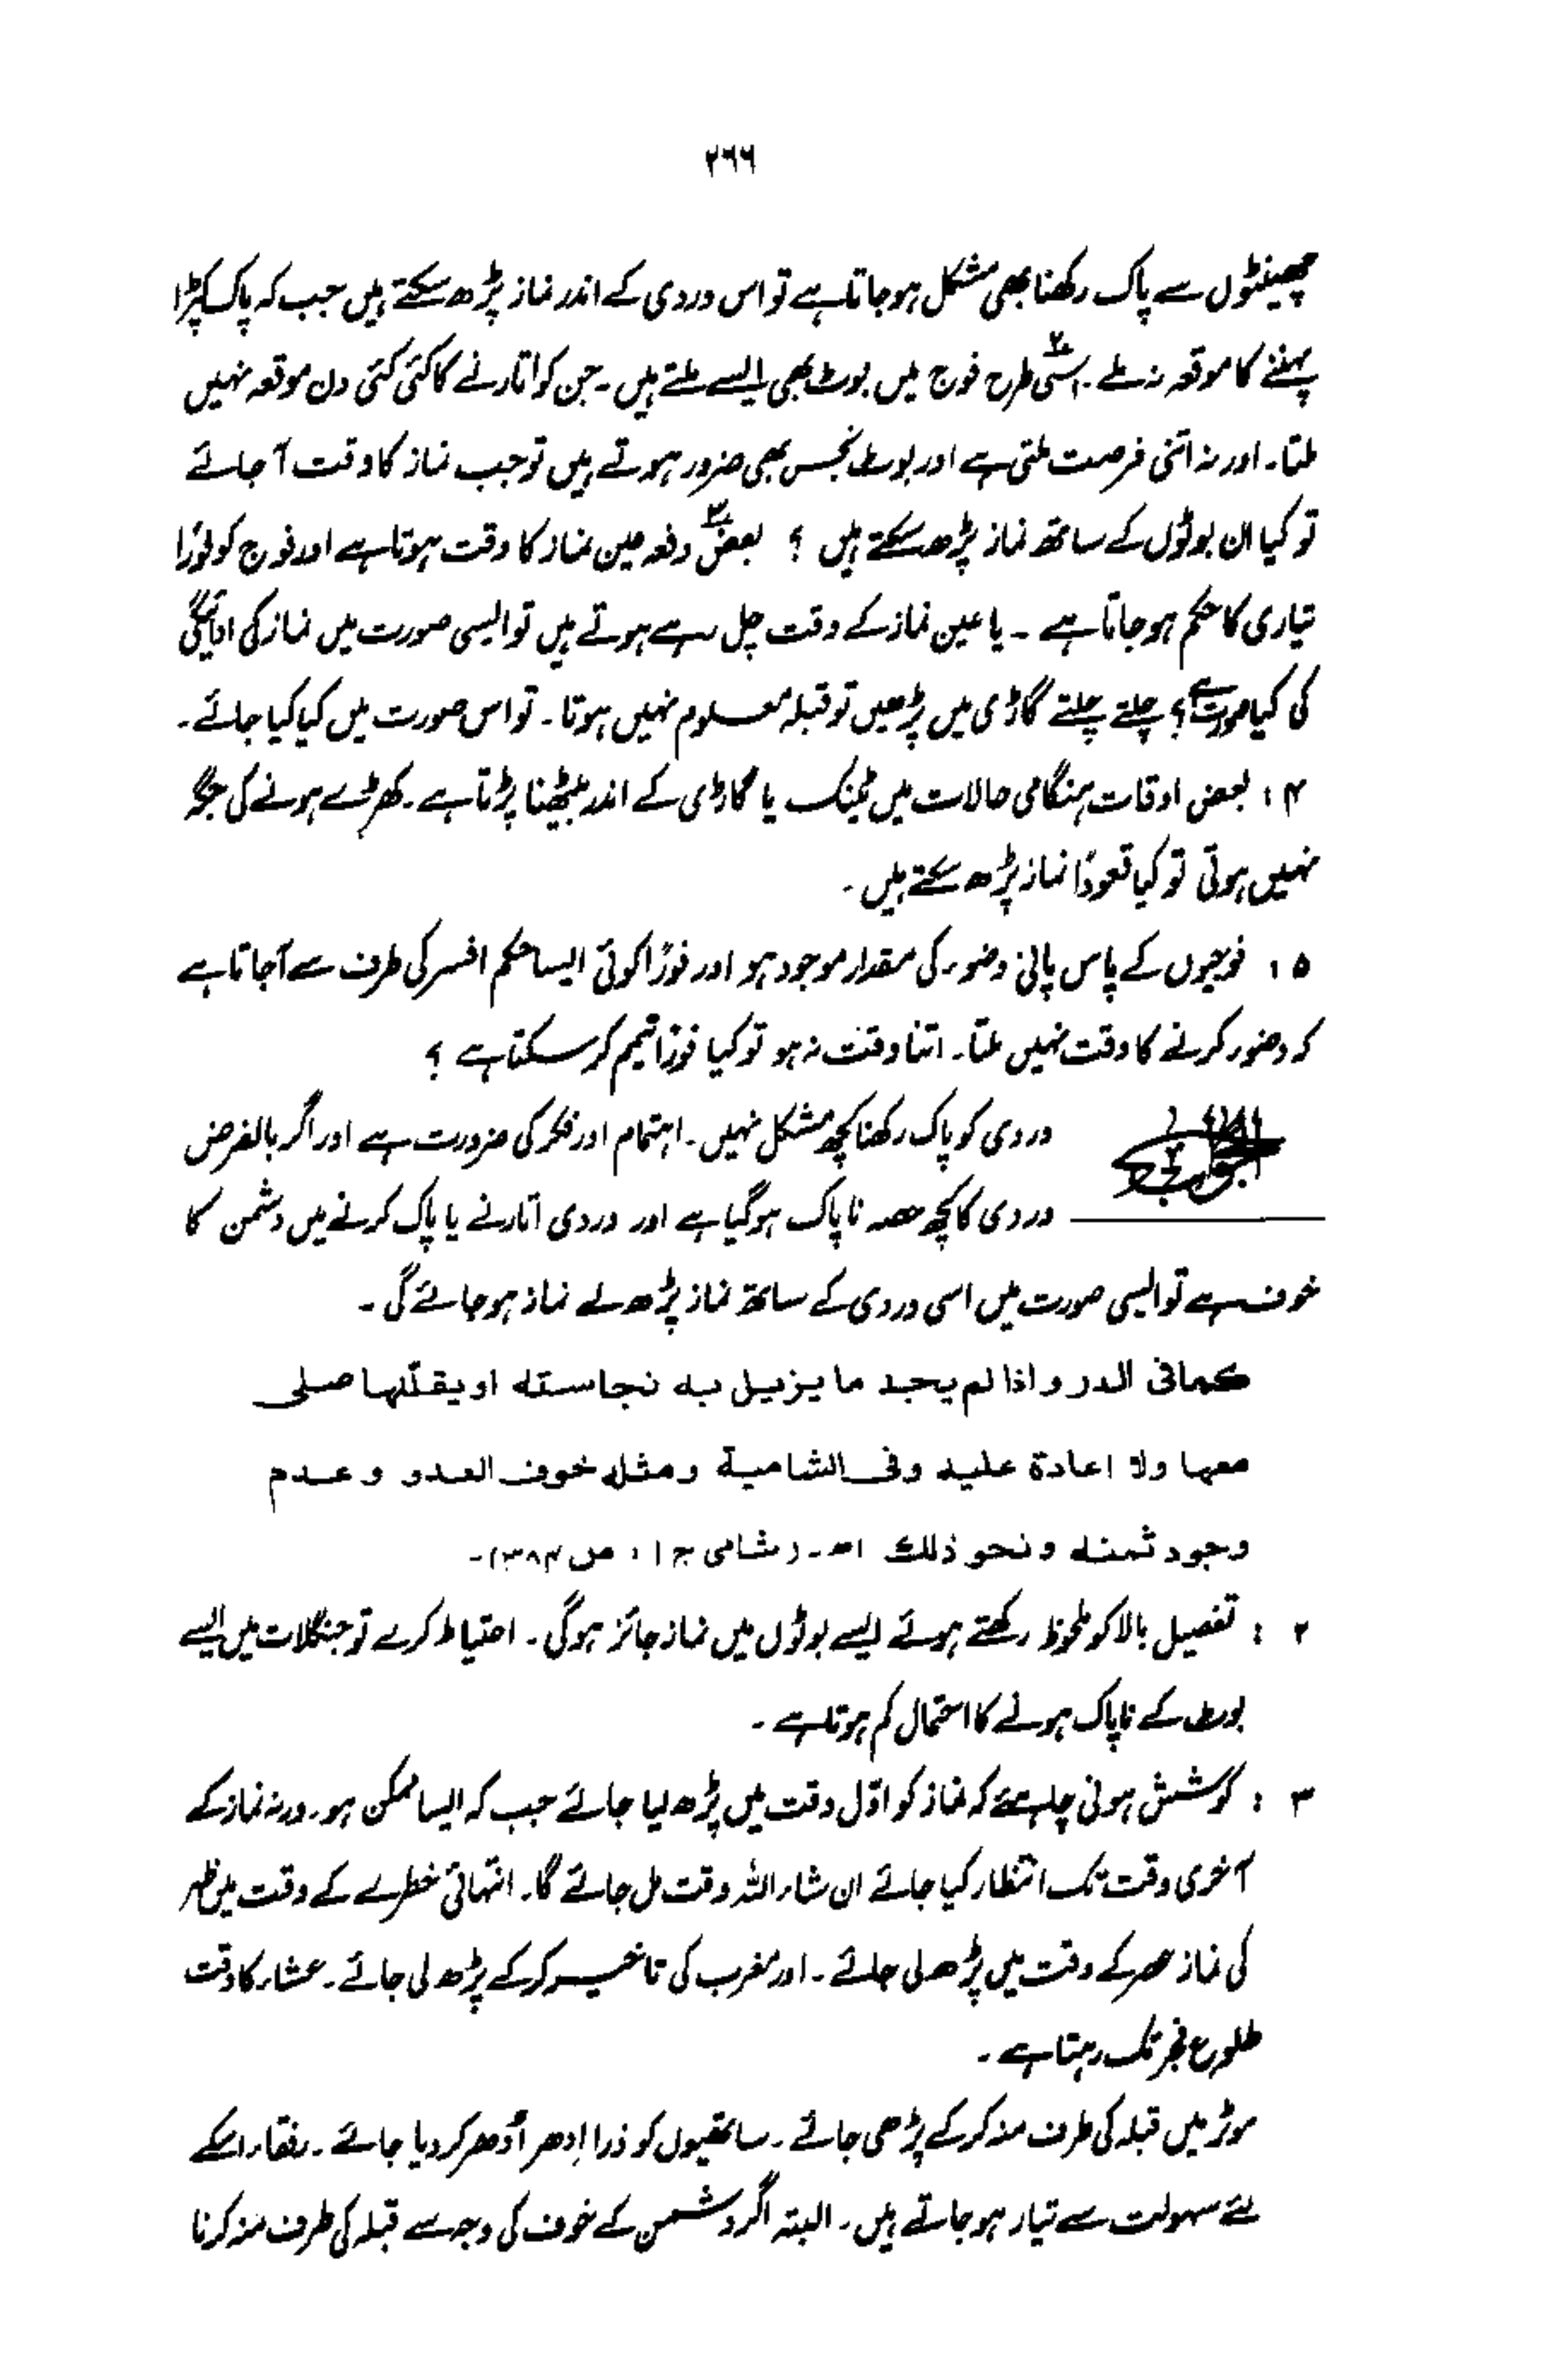 ۲۶۶
چھینٹوں سے پاک رکھنا بھی مشکل ہو جاتا ہے تو اس وردی کے اندر نماز پڑھ سکتے ہیں جب کہ پاک کپڑا
پہننے کا موقعہ نہ ملے۔ ۲ اسی طرح فوج میں بوٹ بھی ایسے ملتے ہیں۔ جن کو اتارنے کا کئی کئی دن موقعہ نہیں
ملتا۔ اور نہ اتنی فرصت ملتی ہے اور بوٹ نجس بھی ضرور ہوتے ہیں تو جب نماز کا وقت آجائے
تو کیا ان بوٹوں کے ساتھ نماز پڑھ سکتے ہیں ؟ ۳ بعض دفعہ عین نماز کا وقت ہوتا ہے اور فوج کو فوراً
تیاری کا حکم ہو جاتا ہے ۔ یا عین نماز کے وقت چل رہے ہوتے ہیں تو ایسی صورت میں نماز کی ادائیگی
کی کیا صورت ہے؟ چلتے چلتے گاڑی میں پڑھیں تو قبلہ معلوم نہیں ہوتا۔ تو اس صورت میں کیا کیا جائے۔
۴ : بعض اوقات ہنگامی حالات میں ٹینک یا گاڑی کے اندر بیٹھنا پڑتا ہے۔ کھڑے ہونے کی جگہ
نہیں ہوتی تو کیا قعوداً نماز پڑھ سکتے ہیں۔
۵ : فوجیوں کے پاس پانی وضوء کی مقدار موجود ہو اور فوراً کوئی ایسا حکم افسر کی طرف سے آجاتا ہے
کہ وضوء کرنے کا وقت نہیں ملتا۔ اتنا وقت نہ ہو تو کیا فوراً تیمم کر سکتا ہے ؟
الجواب وردی کو پاک رکھنا کچھ مشکل نہیں۔ اہتمام اور فکر کی ضرورت ہے اور اگر بالفرض
وردی کا کچھ حصہ ناپاک ہو گیا ہے اور وردی اتارنے یا پاک کرنے میں دشمن کا
خوف ہے تو ایسی صورت میں اسی وردی کے ساتھ نماز پڑھ لے نماز ہو جائے گی ۔
کما فی الدر و اذا لم یجد ما یزیل بہ نجاستہ او یقللہا صلی
معہا ولا اعادة علیہ وفی الشامیة ومثلہ خوف العدو وعدم
وجود ثمنہ ونحو ذلك اھ۔ (شامی ج۱ : ص ۳۸۴)۔
۲ : تفصیل بالا کو ملحوظ رکھتے ہوئے ایسے بوٹوں میں نماز جائز ہوگی ۔ احتیاط کرے تو جنگلات میں ایسے
بوٹ کے ناپاک ہونے کا احتمال کم ہوتا ہے ۔
۳ : کوشش ہونی چاہئے کہ نماز کو اوّل وقت میں پڑھ لیا جائے جب کہ ایسا ممکن ہو۔ ورنہ نماز کے
آخری وقت تک انتظار کیا جائے ان شاء اللہ وقت مل جائے گا۔ انتہائی خطرے کے وقت میں ظہر
کی نماز عصر کے وقت میں پڑھ لی جائے ۔ اور مغرب کی تاخیر کر کے پڑھ لی جائے ۔ عشاء کا وقت
طلوع فجر تک رہتا ہے ۔
موٹر میں قبلہ کی طرف منہ کر کے پڑھی جائے ۔ ساتھیوں کو ذرا اِدھر اُدھر کر دیا جائے ۔ رفقاء اسکے
لئے سہولت سے تیار ہو جاتے ہیں۔ البتہ اگر دشمن کے خوف کی وجہ سے قبلہ کی طرف منہ کرنا